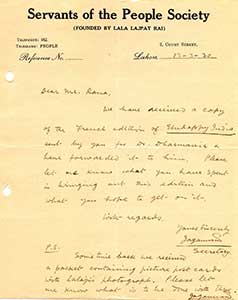 Servants of the People Society
(FOUNDED BY LALA LAJPAT RAI)
TELEPHONE:
TELEGRAMS: PEOPLE
2, COURT STREET,
Reference No.
Lahore
Dear Mr. Rana,
We have received a copy
of the French edition of Unhappy India
sent by you for Dr. Dharmavir &
have forwarded it to him. Please
let me know what you have spent
in bringing out this edition and
what you hope to get on it.
With regards.
Yours Sincerely
Secretary.
P.S.
Some time back we received
a packet containing picture post cards
with Lalaji's photographs. Please let
me know what is to be done with them.